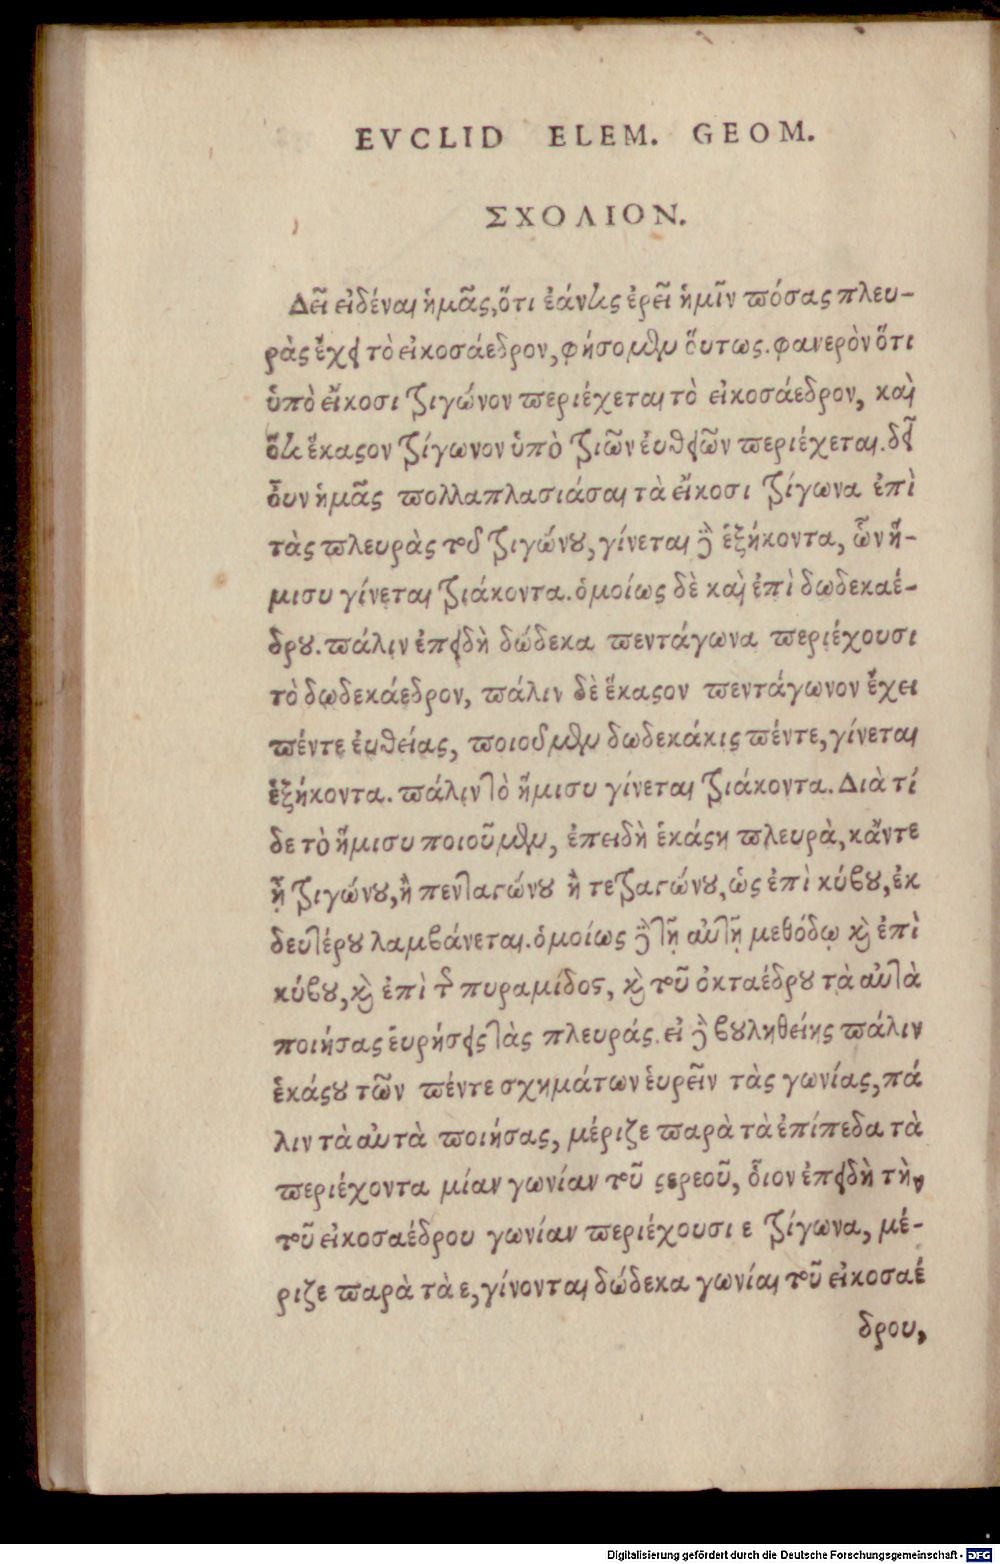 EVCLID ELEM. GEOM.
ΣΧΟΛΙΟΝ.
Δεῖ εἰδέναι ἡμᾶς, ὅτι ἐάν τις ἐρεῖ ἡμῖν πόσας πλευ-
ρὰς ἔχει τὸ εἰκοσάεδρον, φήσομεν ὅυτως. φανερὸν ὅτι
ὑπὸ εἴκοσι τριγώνον περιέχεται τὸ εἰκοσάεδρον, καὶ
ὅτι ἕκαστον τρίγωνον ὑπὸ τριῶν ἐυθειῶν περιέχεται. δεῖ
ὖουν ἡμᾶς πολλαπλασιάσαι τὰ εἴκοσι τρίγωνα ἐπὶ
τὰς πλευρὰς τοῦ τριγώνου, γίνεται δὲ ἑξήκοντα, ὧν ἥ-
μισυ γίνεται τριάκοντα. ὁμοίως δὲ καὶ ἐπὶ δωδεκαέ-
δρου. πάλιν ἐπειδὴ δώδεκα πεντάγωνα περιέχουσι
τὸ δωδεκάεδρον, πάλιν δὲ ἕκαστον πεντάγωνον ἔχει
πέντε ἐυθείας, ποιοῦμεν δωδεκάκις πέντε, γίνεται
ἑξήκοντα. πάλιν τὸ ἥμισυ γίνεται τριάκοντα. Διὰ τί
δε τὸ ἥμισυ ποιοῦμεν, ἐπειδὴ ἑκάστη πλευρὰ, κἄντε
ᾖ τριγώνου, ἢ πενταγώνου ἢ τετραγώνου, ὡς ἐπὶ κύβου, ἐκ
δευτέρου λαμβάνεται. ὁμοίως δὲ τῇ αὐτῇ μεθόδῳ καὶ ἐπὶ
κύβου, καὶ ἐπὶ τῆς πυραμίδος, καὶ τοῦ ὀκταέδρου τὰ αὐτὰ
ποιήσας ἑυρήσεις τὰς πλευράς. εἰ δὲ βουληθείης πάλιν
ἑκάστου τῶν πέντε σχημάτων ἑυρεῖν τὰς γωνίας, πά
λιν τὰ αὐτὰ ποιήσας, μέριζε παρὰ τὰ ἐπίπεδα τὰ
περιέχοντα μίαν γωνίαν τοῦ στερεοῦ, οἷον ἐπειδὴ τὴν
τοῦ εἰκοσαέδρου γωνίαν περιέχουσι ε τρίγωνα, μέ-
ριζε παρὰ τὰ ε, γίνονται δώδεκα γωνίαι τοῦ εἰκοσαέ
δρου,
Digitalisierung gefördert durch die Deutsche Forschungsgemeinschaft - DFG